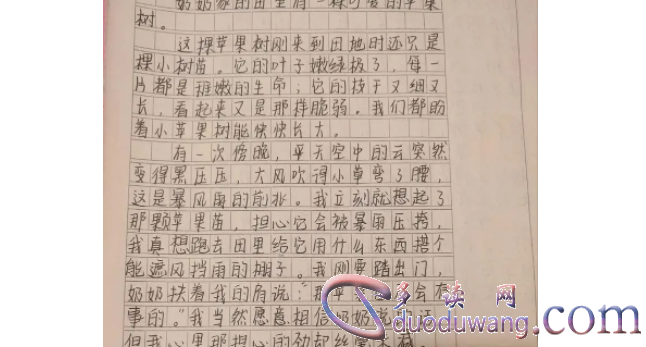 奶奶家的田里有一棵可爱的苹果
树。
这棵苹果树刚来到田地时还只是
棵小树苗。它的叶子嫩绿极了，每一
片都是稚嫩的生命；它的枝干又细又
长，看起来又是那样脆弱。我们都盼
着小苹果树能快快长大。
有一次傍晚，平天空中的云突然
变得黑压压，大风吹得小草弯了腰，
这是暴风雨的前兆。我立刻就想起了
那颗苹果苗，担心它会被暴雨压垮，
我真想跑去田里给它用什么东西搭个
能遮风挡雨的棚子。我刚要踏出门，
奶奶扶着我的肩说："那苹 会有
事的。"我当然愿意相信奶奶说的话
但我心里那担心的劲却丝毫
多读网
duoduwang.com